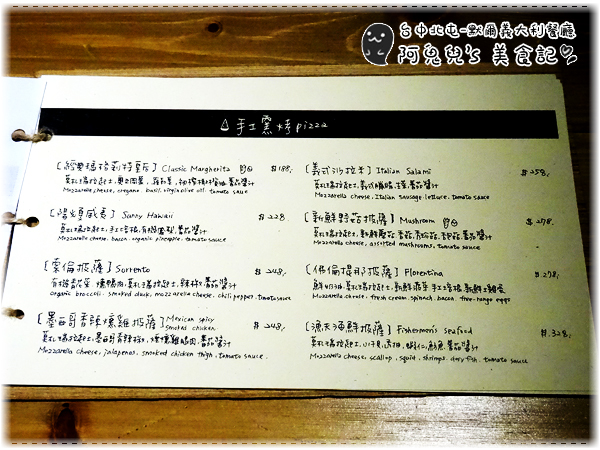 台中北屯-默爾義大利餐廳
阿兒兒's 美食記
手工窯烤pizza
[經典瑪格莉特皇后] Classic Margherita $188.
莫札瑞拉起士.奧勒岡葉.羅勒葉.初榨橄欖油.蕃茄醬汁
Mozzarella cheese, oregano basil, virgin olive oil, tomato sauce
[陽光夏威夷] Sunny Hawaii $228
莫札瑞拉起士.手工培根.有機鳳梨.蕃茄醬汁
Mozzarella cheese, bacon, organic pineapple, tomato sauce
[索倫披薩] Sorrento $248.
有機青花菜.燻鴨肉.莫札瑞拉起士.辣椒.蕃茄醬汁
organic broccoli, smoked duck, mozzarella cheese, chili pepper, tomato sauce
[墨西哥香辣燻雞披薩] Mexican spicy smokes chicken $248.
莫札瑞拉起士.墨西哥香辣椒.煙燻雞腿肉.蕃茄醬汁
Mozzarella cheese, jalapenos, smoked chicken thigh, tomato sauce
[義式沙拉米] Italian Salami $258.
莫札瑞拉起士.義式臘腸.蕃茄醬汁
Mozzarella cheese, Italian sausage, lettuce, tomato sauce
[新鮮野菇披薩] Mushroom $278.
莫札瑞拉起士.蕃茄醬汁
Mozzarella cheese, assorted mushrooms, tomato sauce
[佛倫提那披薩] Florentina $278.
鮮奶油.莫札瑞拉起士.新鮮菠菜.手工培根.新鮮土雞蛋
Mozzarella cheese, fresh cream, spinach, bacon, free-range eggs
[漁夫海鮮披薩] Fishermen's seafood $328.
莫札瑞拉起士.小干貝.透抽.蝦仁.魴魚.蕃茄醬汁
Mozzarella cheese, scallop, squid, shrimps, dory fish, tomato sauce